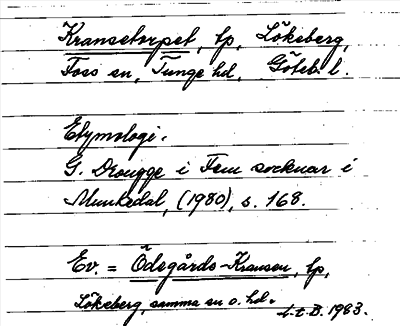 Kransetorpet, lp, Lökeberg,
Foss sn, Tunge hd, Göteb. l.
Etymologi.
G. Drougge i Fem socknar i
Munkedal, (1980), s. 168.
Ev. = Ödegårds-Kransen, lp,
Lökeberg, samma sn o. hd.
L.t.B. 1983.